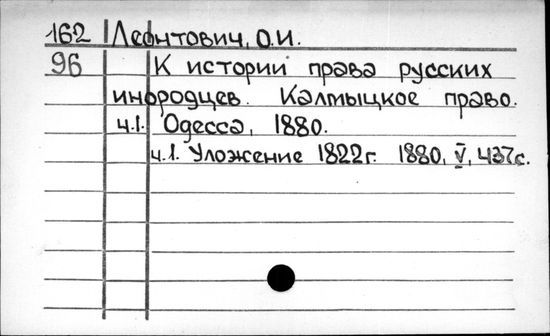 162 Леонтович, О.И.
96 К истории права русских
инородцев. Калмыцкое право.
ч.1. Одесса, 1880.
ч.1. Уложение 1822г. 1880, V, 437с.